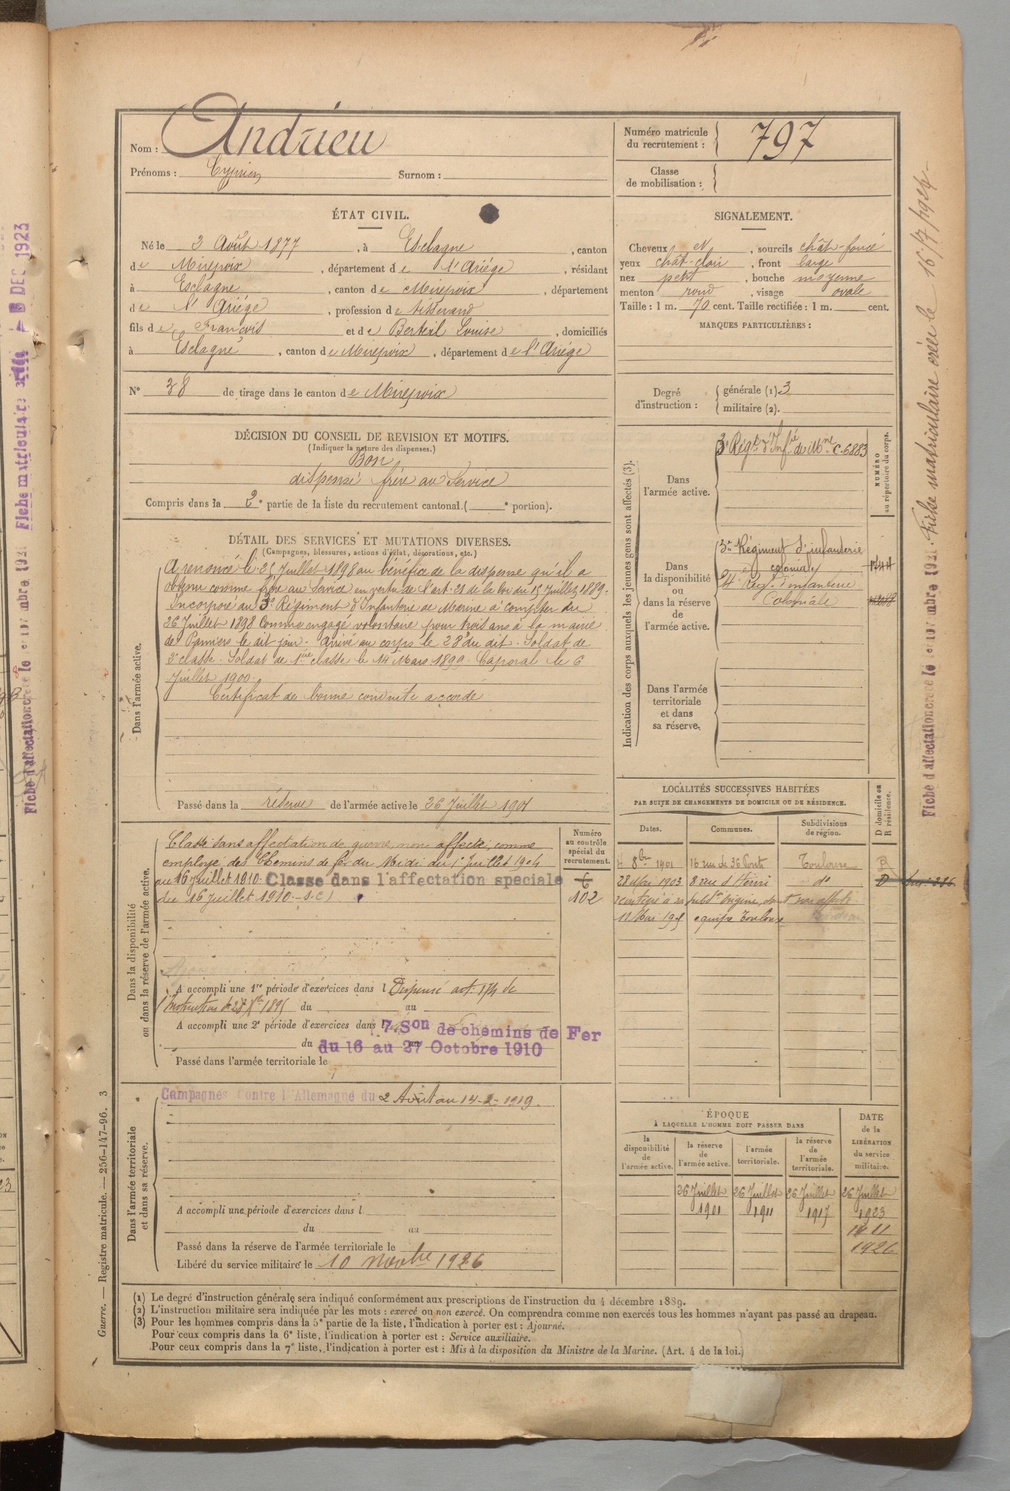 Nom : Andrieu
Prénoms : Cyprien Surnom :
Numéro matricule du recrutement : 797
Classe de mobilisation :
ÉTAT CIVIL.
Né le 3 Août 1877, à Esclagne, canton
de Mirepoix, département de l'Ariége, résidant
à Esclagne, canton de Mirepoix, département
de l'Ariége, profession de tisserand
fils de François et de Berteil Louise, domiciliés
à Esclagne, canton de Mirepoix, département de l'Ariége
N° 38 de tirage dans le canton de Mirepoix
SIGNALEMENT.
Cheveux et sourcils chât-foncé
yeux chât-clair, front large
nez petit, bouche moyenne
menton rond, visage ovale
Taille : 1 m. 70 cent. Taille rectifiée : 1 m. cent.
MARQUES PARTICULIÈRES :
Degré d'instruction : générale (1) 3
militaire (2).
DÉCISION DU CONSEIL DE REVISION ET MOTIFS.
(Indiquer la nature des dispenses.)
Bon
dispensé frère au Service
Compris dans la 2e partie de la liste du recrutement cantonal. ( e portion).
DÉTAIL DES SERVICES ET MUTATIONS DIVERSES.
(Campagnes, blessures, actions d'éclat, décorations, etc.)
Dans l'armée active.
A renoncé le 25 Juillet 1898 au bénéfice de la dispense qu'il a
obtenu comme frère au Service en vertu de l'art. 21 de la loi du 15 Juillet 1889.
Incorporé au 3e Régiment d'Infanterie de Marine à compter du
26 Juillet 1898 Comme engagé volontaire pour trois ans à la mairie
de Pamiers le dit jour. Arrivé au corps le 28 du dit. Soldat de
2e classe. Soldat de 1ère classe le 14 Mars 1899. Caporal le 6
Juillet 1900
Certificat de bonne conduite accordé
Passé dans la réserve de l'armée active le 26 Juillet 1901
Indication des corps auxquels les jeunes gens sont affectés (3).
NUMÉRO au répertoire du corps.
Dans l'armée active.
3e Régt d'Infie de Mne C. 6883
Dans la disponibilité ou dans la réserve de l'armée active.
3e Régiment d'infanterie
coloniale
4e Rég. d'infanterie
Coloniale
Dans l'armée territoriale et dans sa réserve.
LOCALITÉS SUCCESSIVES HABITÉES
PAR SUITE DE CHANGEMENTS DE DOMICILE OU DE RÉSIDENCE.
Dates. Communes. Subdivisions de région. D domicile ou R résidence.
8bre 1901 16 rue des 36 Ponts Toulouse R
28 Mai 1903 8 rue d do D
11 Mai equipe Toulouse
Dans la disponibilité ou dans la réserve de l'armée active.
Numéro au contrôle spécial du recrutement.
Classé sans affectation de guerre, non affecté, comme
employé des Chemins de fer du Midi du 1er Juillet 1904
au 16 Juillet 1910. Classé dans l'affectation spéciale
du 16 juillet 1910. S.C.)
6
102
A accompli une 1re période d'exercices dans l Dispensé art. 194 de
l'Instruction du 28 Xbre 1895 du au
A accompli une 2e période d'exercices dans 7e Son de chemins de Fer
du 16 au 27 Octobre 1910
Passé dans l'armée territoriale le
Dans l'armée territoriale et dans sa réserve.
Campagne Contre l'Allemagne du 2 Août au 14-2-1919.
A accompli une période d'exercices dans l
du au
Passé dans la réserve de l'armée territoriale le
Libéré du service militaire le 10 novbre 1926
ÉPOQUE
À LAQUELLE L'HOMME DOIT PASSER DANS
la disponibilité de l'armée active.
la réserve de l'armée active.
l'armée territoriale.
la réserve de l'armée territoriale.
DATE de la LIBÉRATION du service militaire.
26 Juillet 1901
26 Juillet 1911
26 Juillet 1917
26 Juillet 1923
1926
(1) Le degré d'instruction générale sera indiqué conformément aux prescriptions de l'instruction du 4 décembre 1889.
(2) L'instruction militaire sera indiquée par les mots : exercé ou non exercé. On comprendra comme non exercés tous les hommes n'ayant pas passé au drapeau.
(3) Pour les hommes compris dans la 5e partie de la liste, l'indication à porter est : Ajourné.
Pour ceux compris dans la 6e liste, l'indication à porter est : Service auxiliaire.
Pour ceux compris dans la 7e liste, l'indication à porter est : Mis à la disposition du Ministre de la Marine. (Art. 4 de la loi.)
Guerre. — Registre matricule. — 256-147-96. 3
Fiche matriculaire créée le 16/7/1924
Fiche d'affectation créée le 1er novembre 1921.
DEC 1923
Fiche matriculaire
Fiche d'affectation créée le 1er novembre 1921